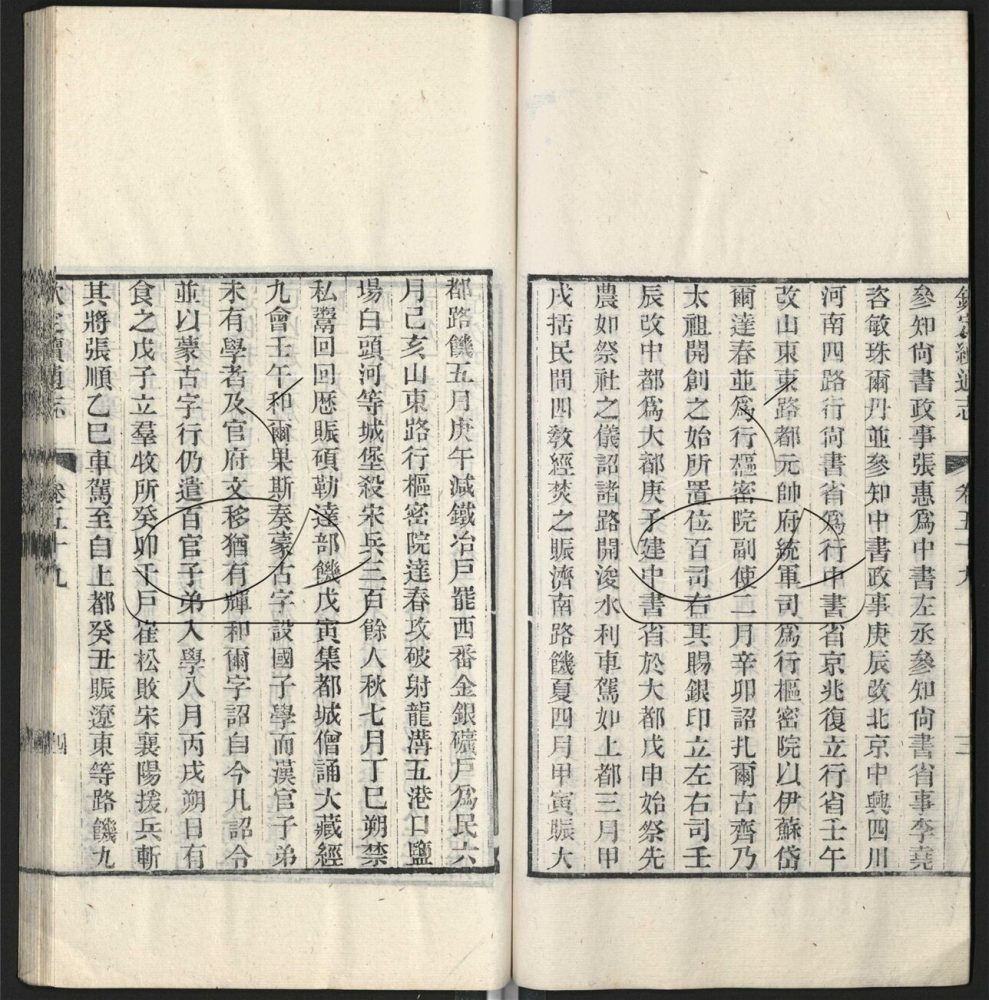 欽定續通志
卷五十九
三
參知尚書政事張惠爲中書左丞參知尚書省事李堯
咨敏珠爾丹並參知中書政事庚辰改北京中興四川
河南四路行尚書省爲行中書省京兆復立行省壬午
改山東東路都元帥府統軍司爲行樞密院以伊蘇岱
爾達春並爲行樞密院副使二月辛卯詔扎爾古齊乃
太祖開創之始所置位百司右其賜銀印立左右司壬
辰改中都爲大都庚子建中書省於大都戊申始祭先
農如祭社之儀詔諸路開浚水利車駕如上都三月甲
戌括民間四敎經焚之賑濟南路饑夏四月甲寅賑大
都路饑五月庚午減鐵冶戶罷西番金銀礦戶爲民六
月己亥山東路行樞密院達春攻破射龍溝五港口鹽
場白頭河等城堡殺宋兵三百餘人秋七月丁巳朔禁
私鬻回回厯賑碩勒達部饑戊寅集都城僧誦大藏經
九會壬午和爾果斯奏蒙古字設國子學而漢官子弟
未有學者及官府文移猶有輝和爾字詔自今凡詔令
並以蒙古字行仍遣百官子弟入學八月丙戌朔日有
食之戊子立羣牧所癸卯千戶崔松敗宋襄陽援兵斬
其將張順乙巳車駕至自上都癸丑賑遼東等路饑九
欽定續通志
卷五十九
四